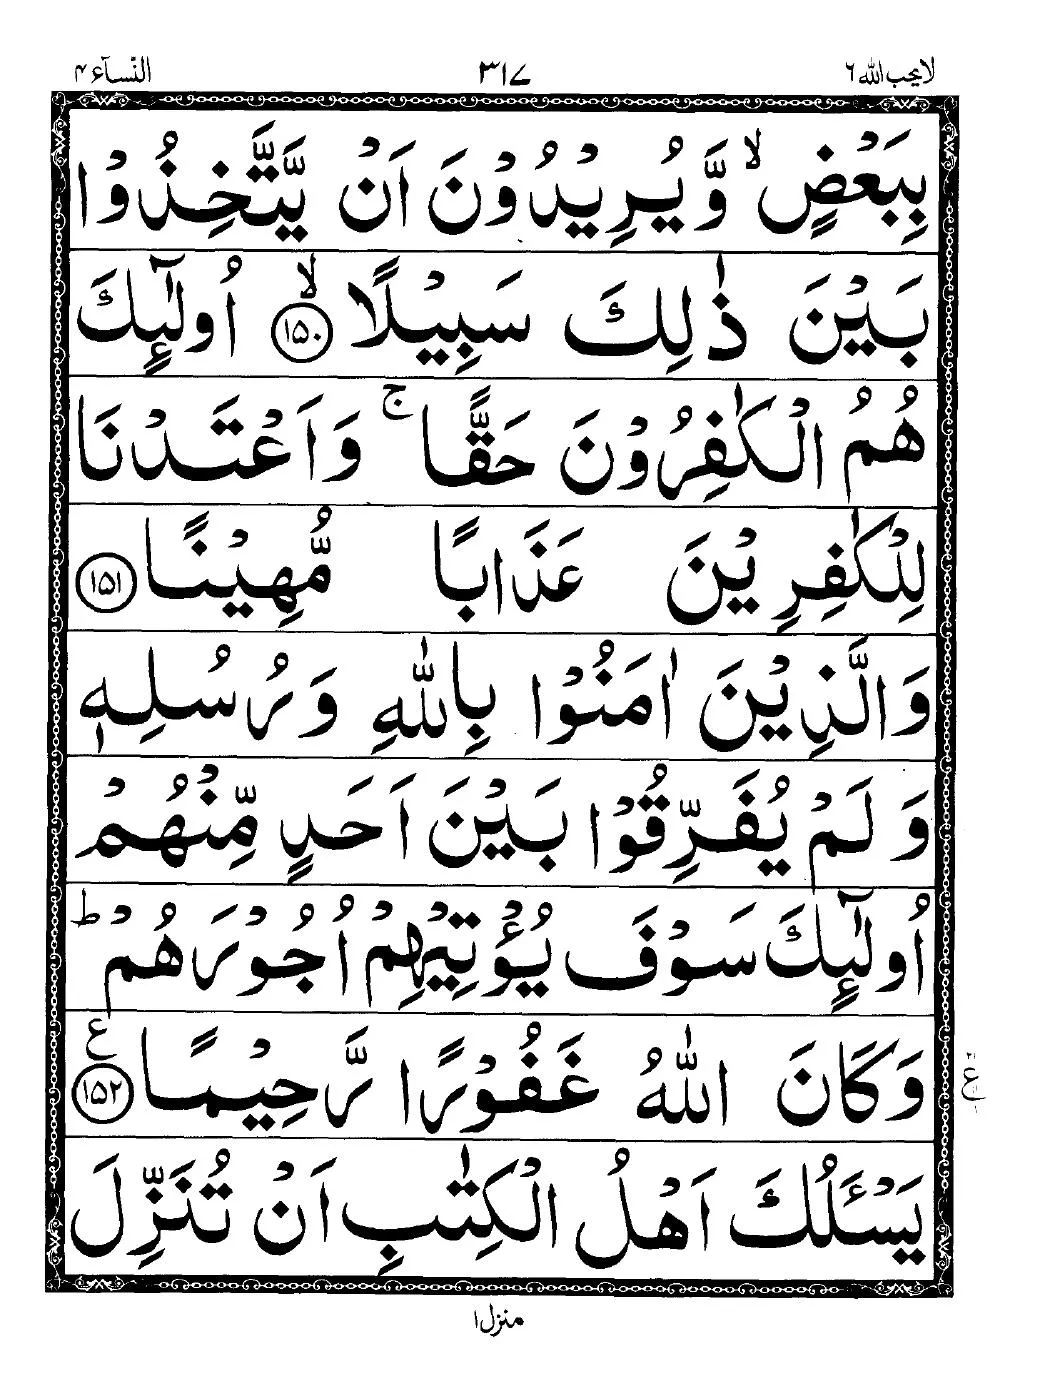 لا يحب الله ٦
٣١٧
النسآء ٤
بِبَعۡضٍ ۙ وَّيُرِيۡدُوۡنَ اَنۡ يَّتَّخِذُوۡا
بَيۡنَ ذٰ لِكَ سَبِيۡلًا ۙ‏ ﴿۱۵۰﴾ اُولٰٓٮِٕكَ
هُمُ الۡـكٰفِرُوۡنَ حَقًّا‌ ۚ وَاَعۡتَدۡنَا
لِلۡكٰفِرِيۡنَ عَذَابًا مُّهِيۡنًا‏ ﴿۱۵۱﴾
وَالَّذِيۡنَ اٰمَنُوۡا بِاللّٰهِ وَرُسُلِهٖ
وَلَمۡ يُفَرِّقُوۡا بَيۡنَ اَحَدٍ مِّنۡهُمۡ
اُولٰٓٮِٕكَ سَوۡفَ يُؤۡتِيۡهِمۡ اُجُوۡرَهُمۡ‌ ؕ
وَكَانَ اللّٰهُ غَفُوۡرًا رَّحِيۡمًا ﴿۱۵۲﴾ ع
يَسۡـئَلُكَ اَهۡلُ الۡـكِتٰبِ اَنۡ تُنَزِّلَ
منزل ١